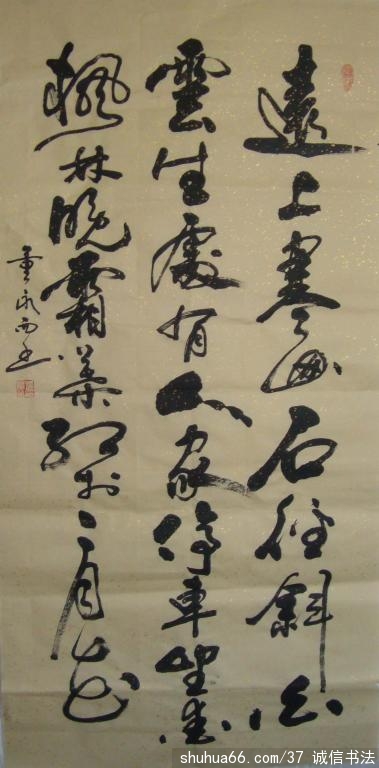 遠上寒山石徑斜白
雲生處有人家停車坐愛
楓林晚霜葉紅於二月花
shuhua66.com/37 诚信书法